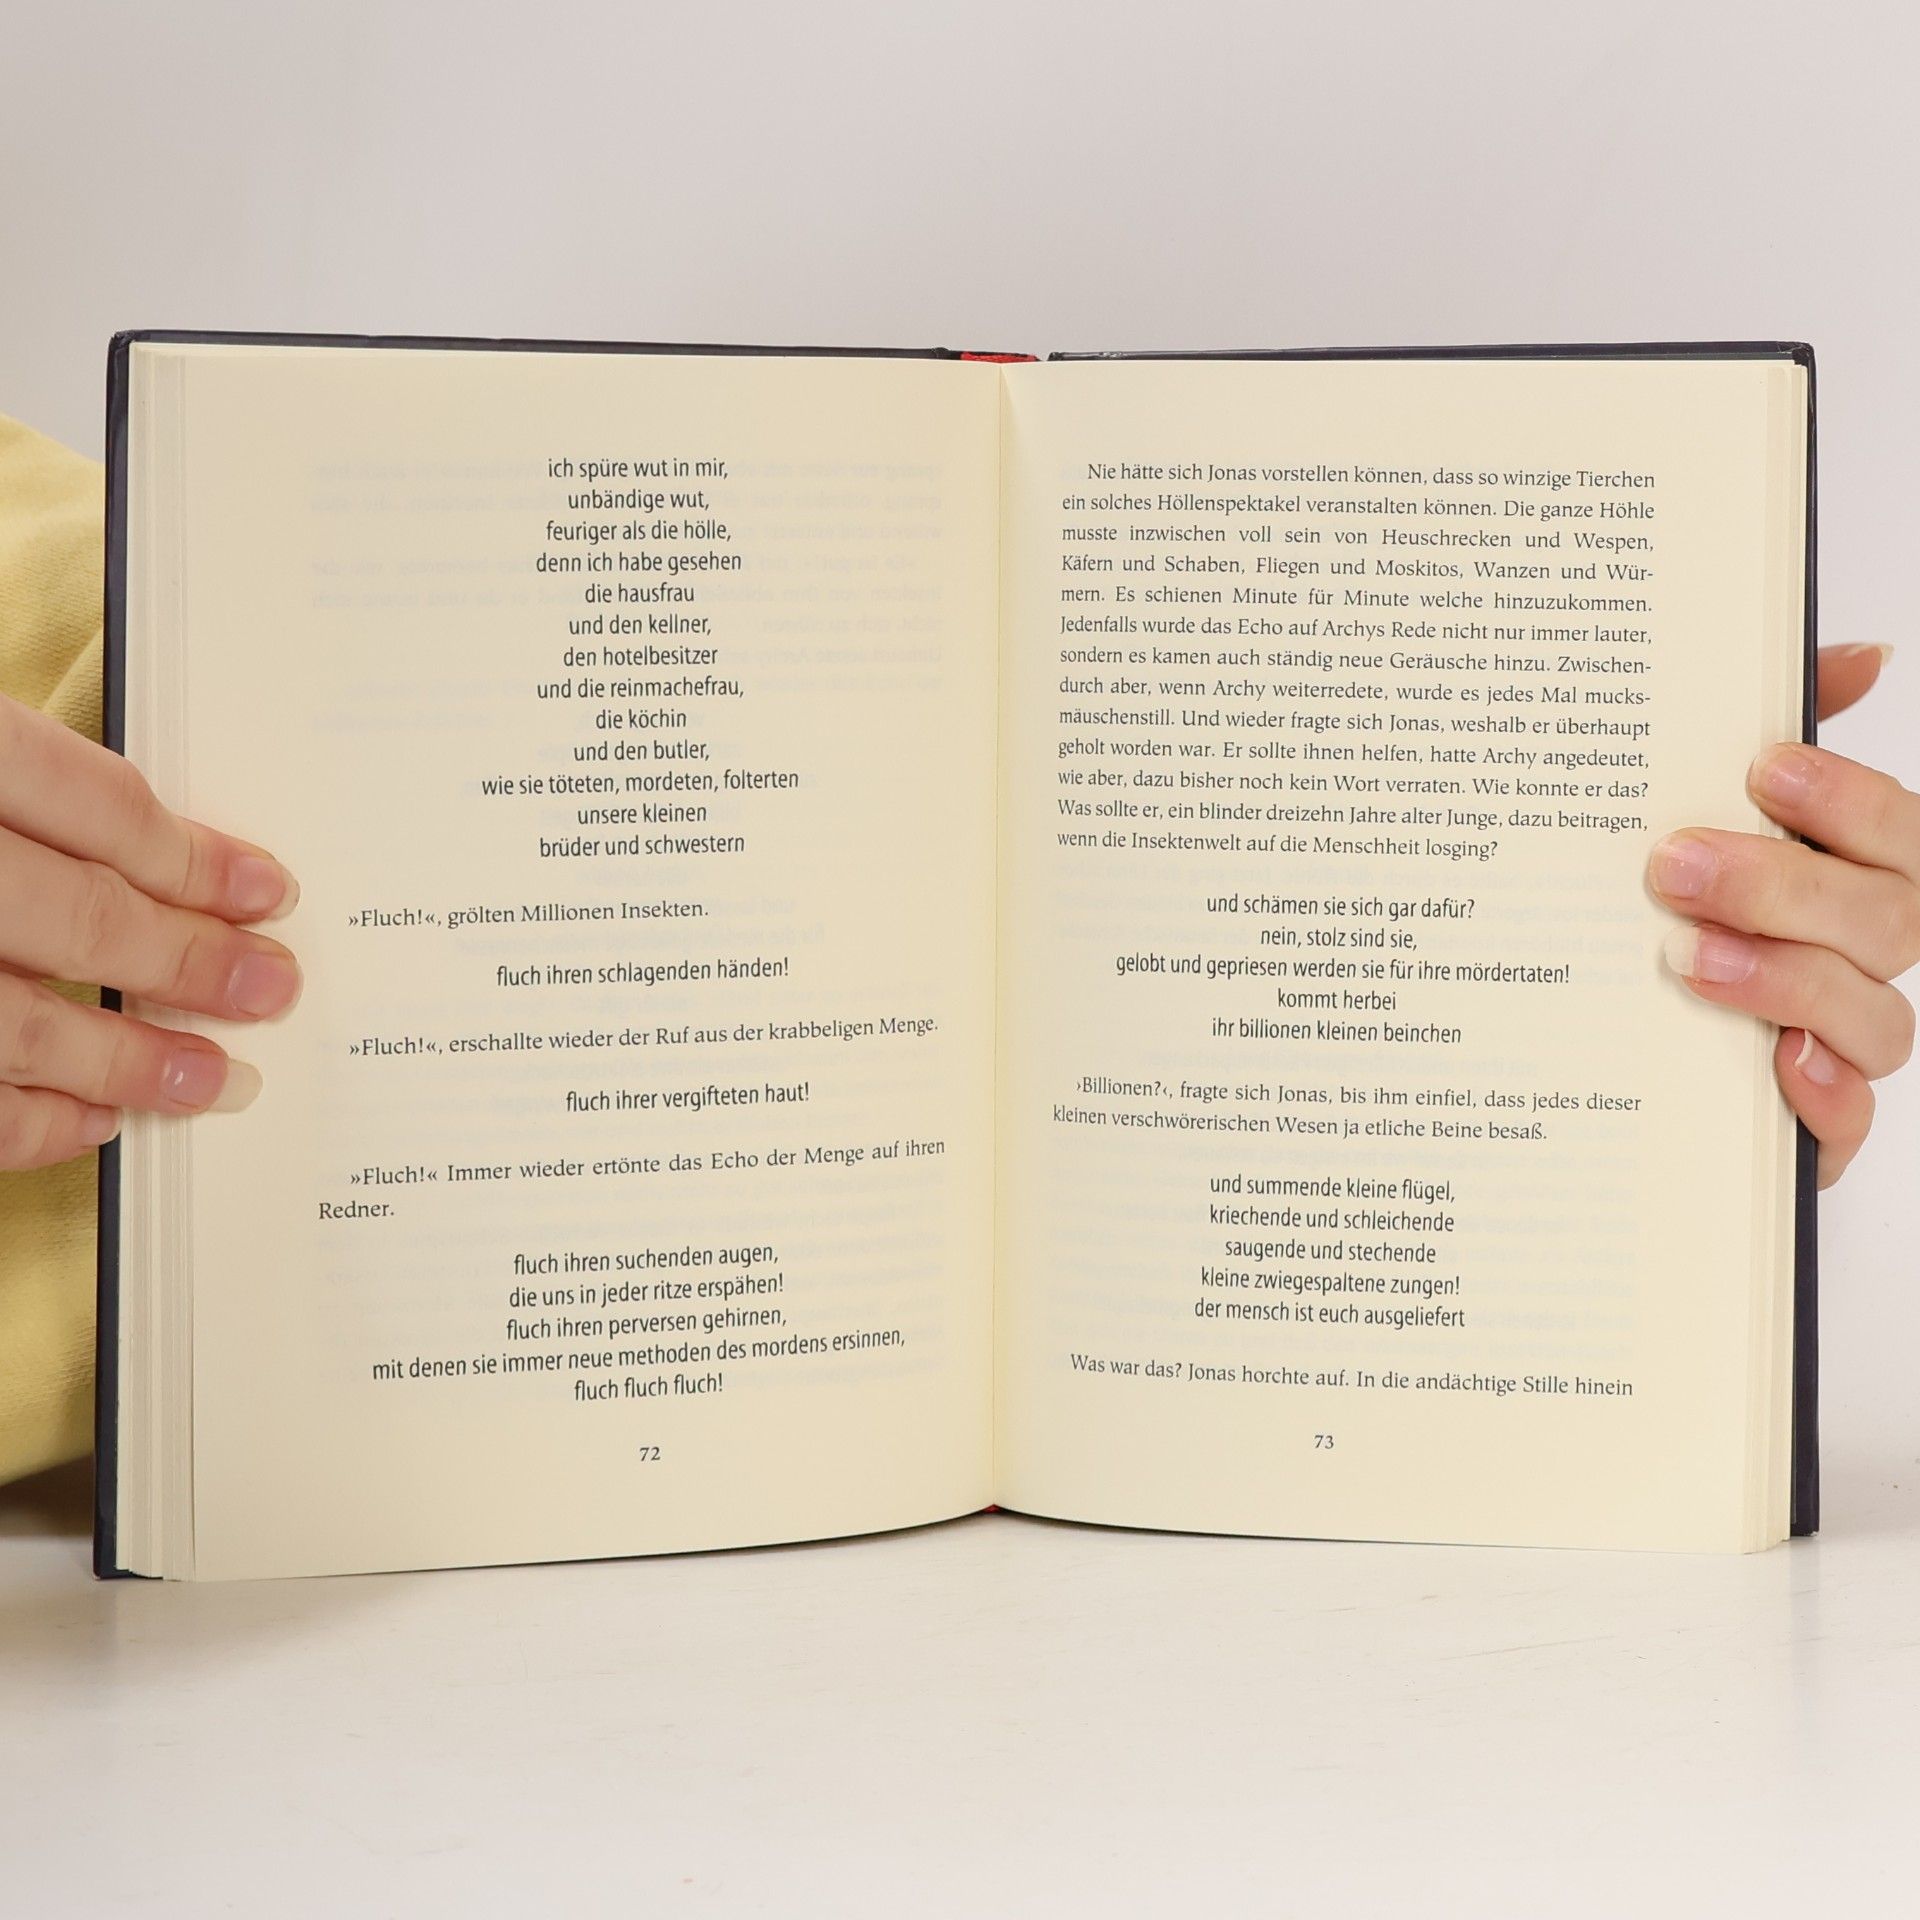 ich spüre wut in mir,
unbändige wut,
feuriger als die hölle,
denn ich habe gesehen
die hausfrau
und den kellner,
den hotelbesitzer
und die reinmachefrau,
die köchin
und den butler,
wie sie töteten, mordeten, folterten
unsere kleinen
brüder und schwestern
»Fluch!«, grölten Millionen Insekten.
fluch ihren schlagenden händen!
»Fluch!«, erschallte wieder der Ruf aus der krabbeligen Menge.
fluch ihrer vergifteten haut!
»Fluch!« Immer wieder ertönte das Echo der Menge auf ihren
Redner.
fluch ihren suchenden augen,
die uns in jeder ritze erspähen!
fluch ihren perversen gehirnen,
mit denen sie immer neue methoden des mordens ersinnen,
fluch fluch fluch!
72
Nie hätte sich Jonas vorstellen können, dass so winzige Tierchen
ein solches Höllenspektakel veranstalten können. Die ganze Höhle
musste inzwischen voll sein von Heuschrecken und Wespen,
Käfern und Schaben, Fliegen und Moskitos, Wanzen und Wür-
mern. Es schienen Minute für Minute welche hinzuzukommen.
Jedenfalls wurde das Echo auf Archys Rede nicht nur immer lauter,
sondern es kamen auch ständig neue Geräusche hinzu. Zwischen-
durch aber, wenn Archy weiterredete, wurde es jedes Mal mucks-
mäuschenstill. Und wieder fragte sich Jonas, weshalb er überhaupt
geholt worden war. Er sollte ihnen helfen, hatte Archy angedeutet,
wie aber, dazu bisher noch kein Wort verraten. Wie konnte er das?
Was sollte er, ein blinder dreizehn Jahre alter Junge, dazu beitragen,
wenn die Insektenwelt auf die Menschheit losging?
und schämen sie sich gar dafür?
nein, stolz sind sie,
gelobt und gepriesen werden sie für ihre mördertaten!
kommt herbei
ihr billionen kleinen beinchen
›Billionen?‹, fragte sich Jonas, bis ihm einfiel, dass jedes dieser
kleinen verschwörerischen Wesen ja etliche Beine besaß.
und summende kleine flügel,
kriechende und schleichende
saugende und stechende
kleine zwiegespaltene zungen!
der mensch ist euch ausgeliefert
Was war das? Jonas horchte auf. In die andächtige Stille hinein
73